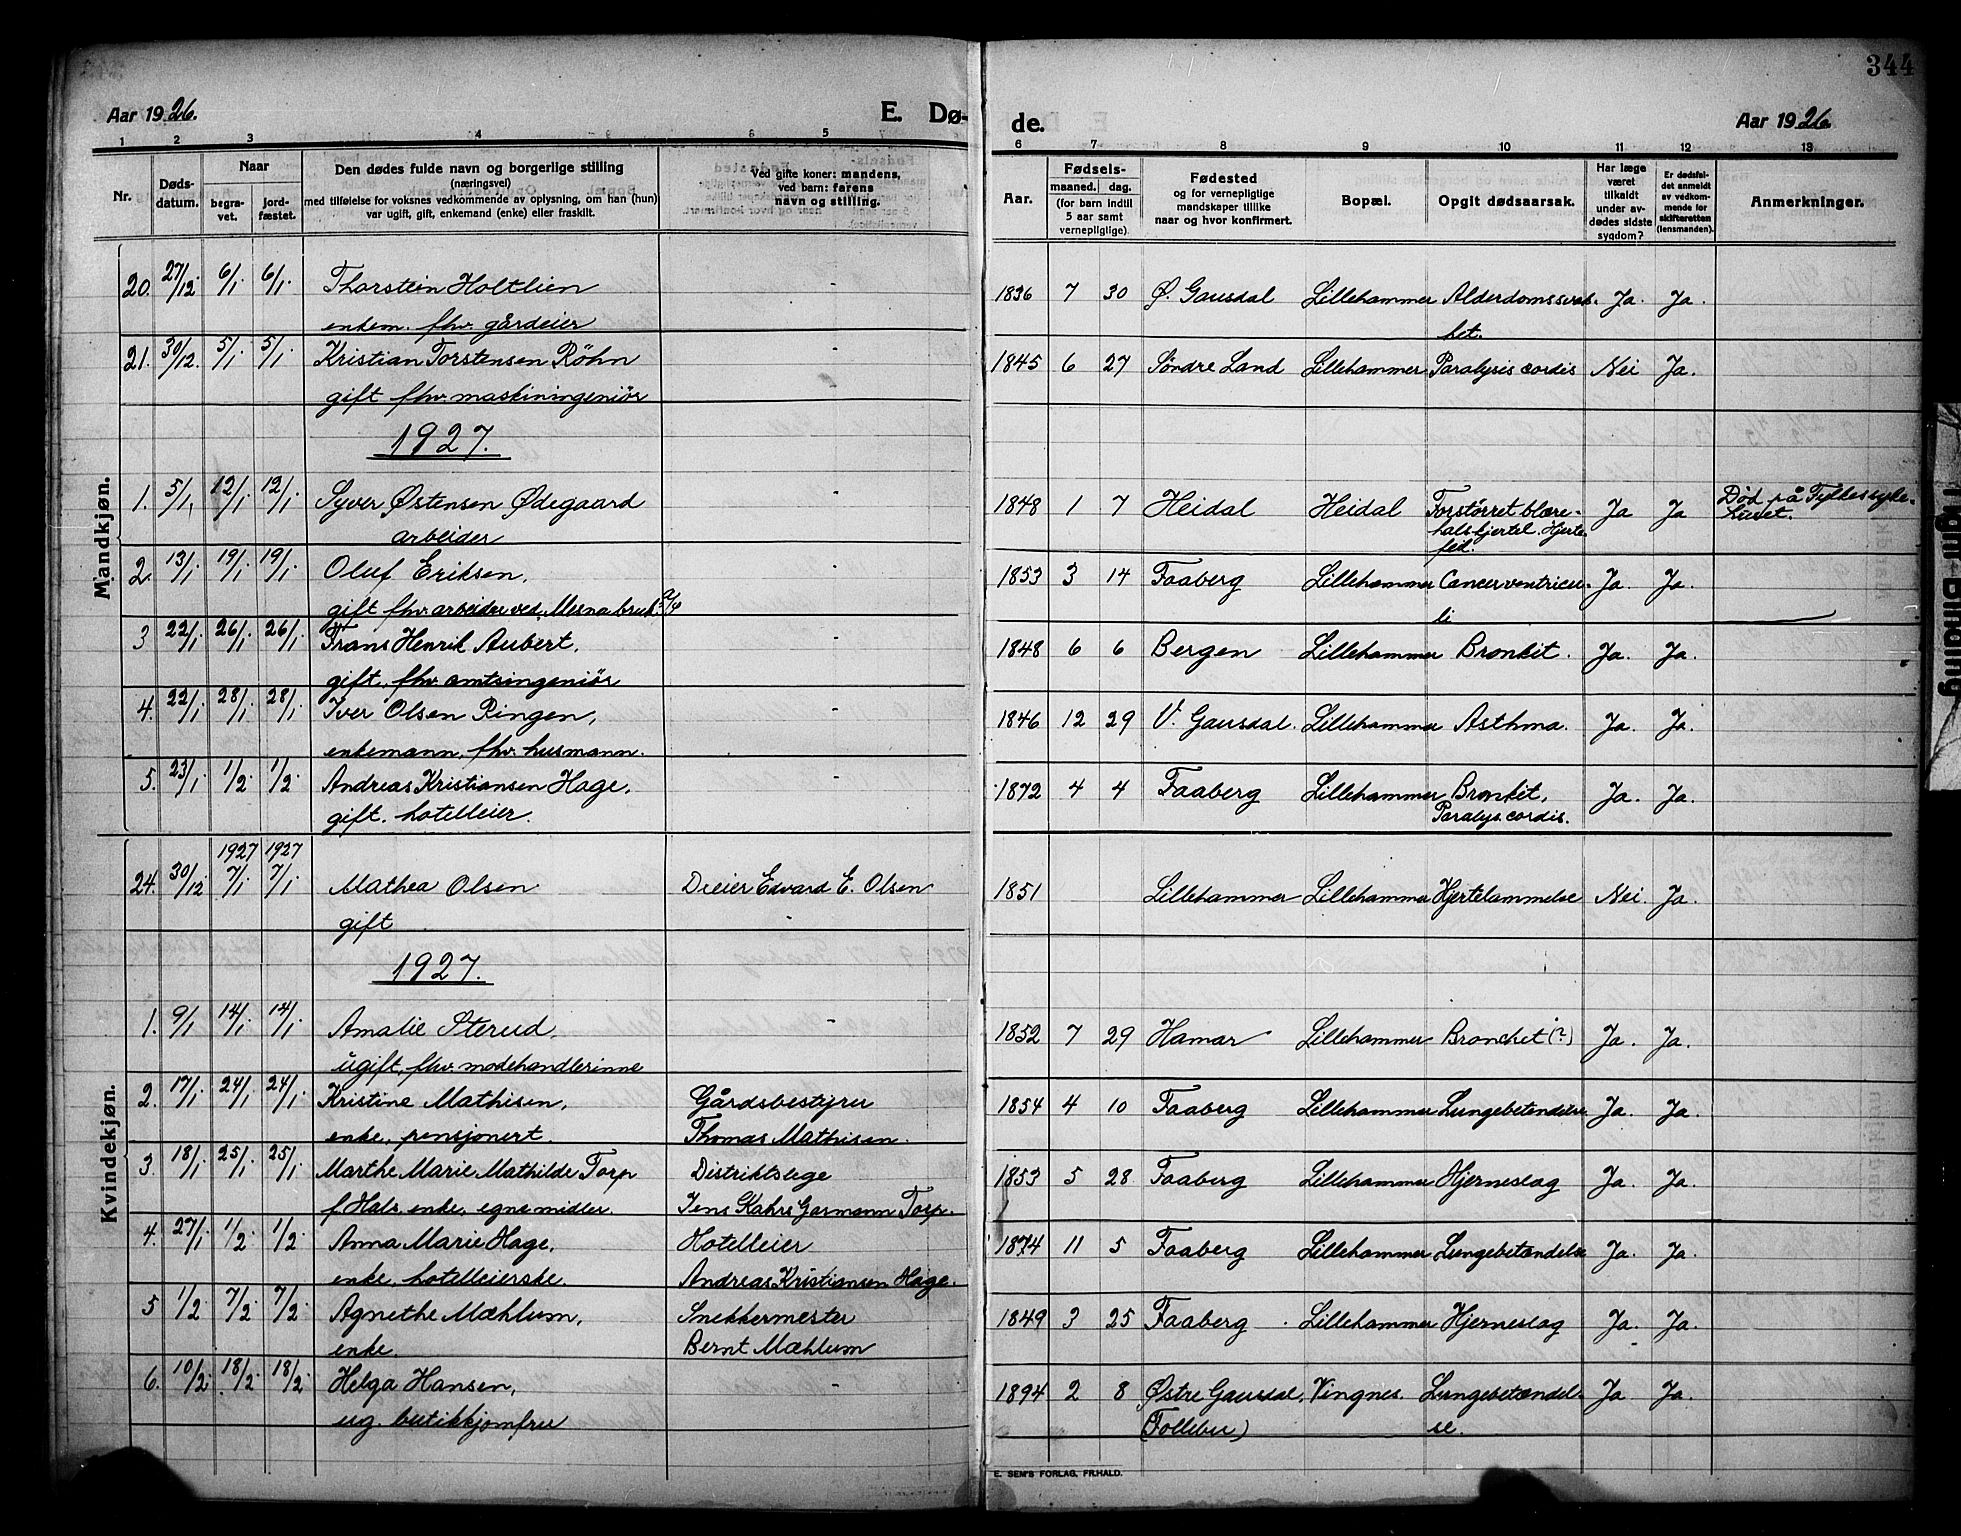 344
Aar 1926.
E. Dø-
de.
Aar 1926
1 2 3 4 5
6 7 8 9 10 11 12 13
Nr.
Døds-
datum.
Naar
begra-
vet.
jord-
fæstet.
Den dødes fulde navn og borgerlige stilling
(næringsvei)
med tilføielse for voksnes vedkommende av oplysning, om han (hun)
var ugift, gift, enkemand (enke) eller fraskilt.
Ved gifte koner: mandens,
ved barn: farens
navn og stilling.
Aar.
Fødsels-
maaned. dag.
(for barn indtil
5 aar samt
vernepligtige).
Fødested
og for vernepligtige
mandskaper tillike
naar og hvor konfirmert.
Bopæl.
Opgit dødsaarsak.
Har læge
været
tilkaldt
under av-
dødes sidste
sygdom?
Er dødsfal-
det anmeldt
av vedkom-
mende for
skifteretten
(lensmanden).
Anmerkninger.
Mandkjøn.
20. 27/12 6/1. 6/1. Thorstein Holtlien - 1836 7 30 Ø. Gausdal Lillehammer Alderdomssvak- Ja. Ja.
enkem. fhv. gårdeier het.
21. 30/12. 5/1. 5/1. Kristian Torstensen Röhn - 1845 6 27 Søndre Land Lillehammer Paralysis cordis Nei Ja.
gift fhv. maskiningeniør
1927.
1. 5/1. 12/1. 12/1. Syver Østensen Ødegaard - 1848 1 7 Heidal Heidal Forstørret blære- Ja Ja Død på Fylkessyke-
arbeider halskjertel. Hjerte- huset.
feil.
2. 13/1. 19/1. 19/1. Oluf Eriksen, - 1853 3 14 Faaberg Lillehammer Cancer ventricu- Ja. Ja.
gift fhv. arbeider ved Mesna bruk li
3 22/1. 26/1. 26/1. Frans Henrik Aubert, - 1848 6 6 Bergen Lillehammer Bronkit. Ja. Ja.
gift, fhv. amtsingeniør
4. 22/1. 28/1. 28/1. Iver Olsen Ringen, - 1846 12 29 V. Gausdal. Lillehammer Asthma. Ja. Ja.
enkemann, fhv. husmann.
5. 23/1. 1/2. 1/2. Andreas Kristiansen Hage, - 1872 4 4 Faaberg Lillehammer Bronkit, Ja. Ja.
gift. hotelleier. Paralys. cordis.
Kvindekjøn.
1927 1927
24. 30/12 7/1. 7/1. Mathea Olsen Dreier Edvard E. Olsen 1851 Lillehammer Lillehammer Hjertelammelse Nei. Ja.
gift
1927.
1. 9/1 14/1. 14/1. Amalie Sterud, - 1852 7 29 Hamar Lillehammer Bronchit (?) Ja. Ja.
ugift, fhv. modehandlerinne
2. 17/1. 24/1. 24/1. Kristine Mathisen, Gårdsbestyrer 1854 4 10 Faaberg Lillehammer Lungebetendelse. Ja. Ja.
enke, pensjonert. Thomas Mathisen.
3. 18/1. 25/1. 25/1. Marthe Marie Mathilde Torp Distriktslege 1853 5 28 Faaberg Lillehammer Hjerneslag Ja. Ja.
f. Hals enke, egne midler. Jens Kahrs Garmann Torp.
4. 27/1. 1/2. 1/2. Anna Marie Hage, Hotelleier 1874 11 5 Faaberg Lillehammer Lungebetændelse Ja. Ja.
enke, hotelleierske. Andreas Kristiansen Hage.
5 1/2 7/2. 7/2. Agnethe Mæhlum, Snekkermester 1849 3 25 Faaberg Lillehammer Hjerneslag Ja. Ja.
enke. Bernt Mæhlum
6. 10/2. 18/2. 18/2. Helga Hansen, - 1894 2 8 Østre Gausdal, Vingnes. Lungebetændel- Ja Ja.
ug. butikkjomfru (Follebu) se.
E. SEM'S FORLAG, FR.HALD.